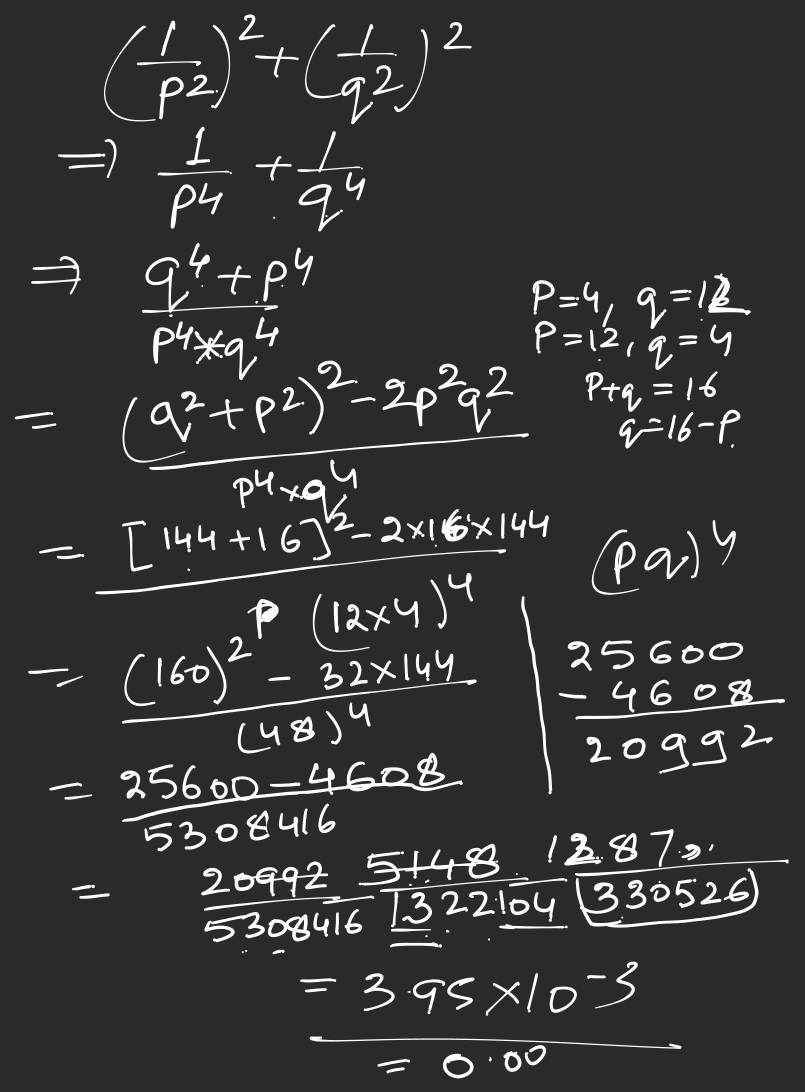 (1/p2)² + (1/q2)²
⇒ 1/p4 + 1/q4
⇒ (q4 + p4)/(p4 * q4)
P=4, q=12
P=12, q=4
P+q = 16
q=16-P
= ((q² + p²)² - 2p²q²)/(p4 × q4)
= ([144+16]² - 2×16×144)/(12×4)4
(pq)4
= ((160)² - 32×144)/(48)4
25600
- 4608
20992
= (25600-4608)/5308416
= 20992/5308416 5148/1322104 1287/330526
= 3.95×10-3
= 0.00